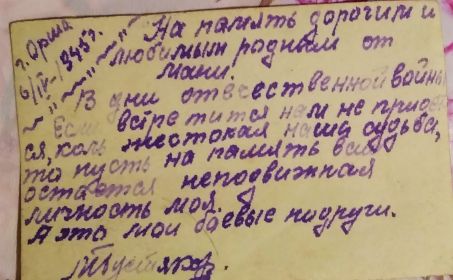 г. Орша
6/IV-1945г.
На память дорогим и
любимым родным от
Мани.
В дни отечественной войны
Если встретится нам не придет
ся, коль жестокая наша судьба,
то пусть на память вам
остается неподвижная
личность моя.
А это мои боевые подруги.